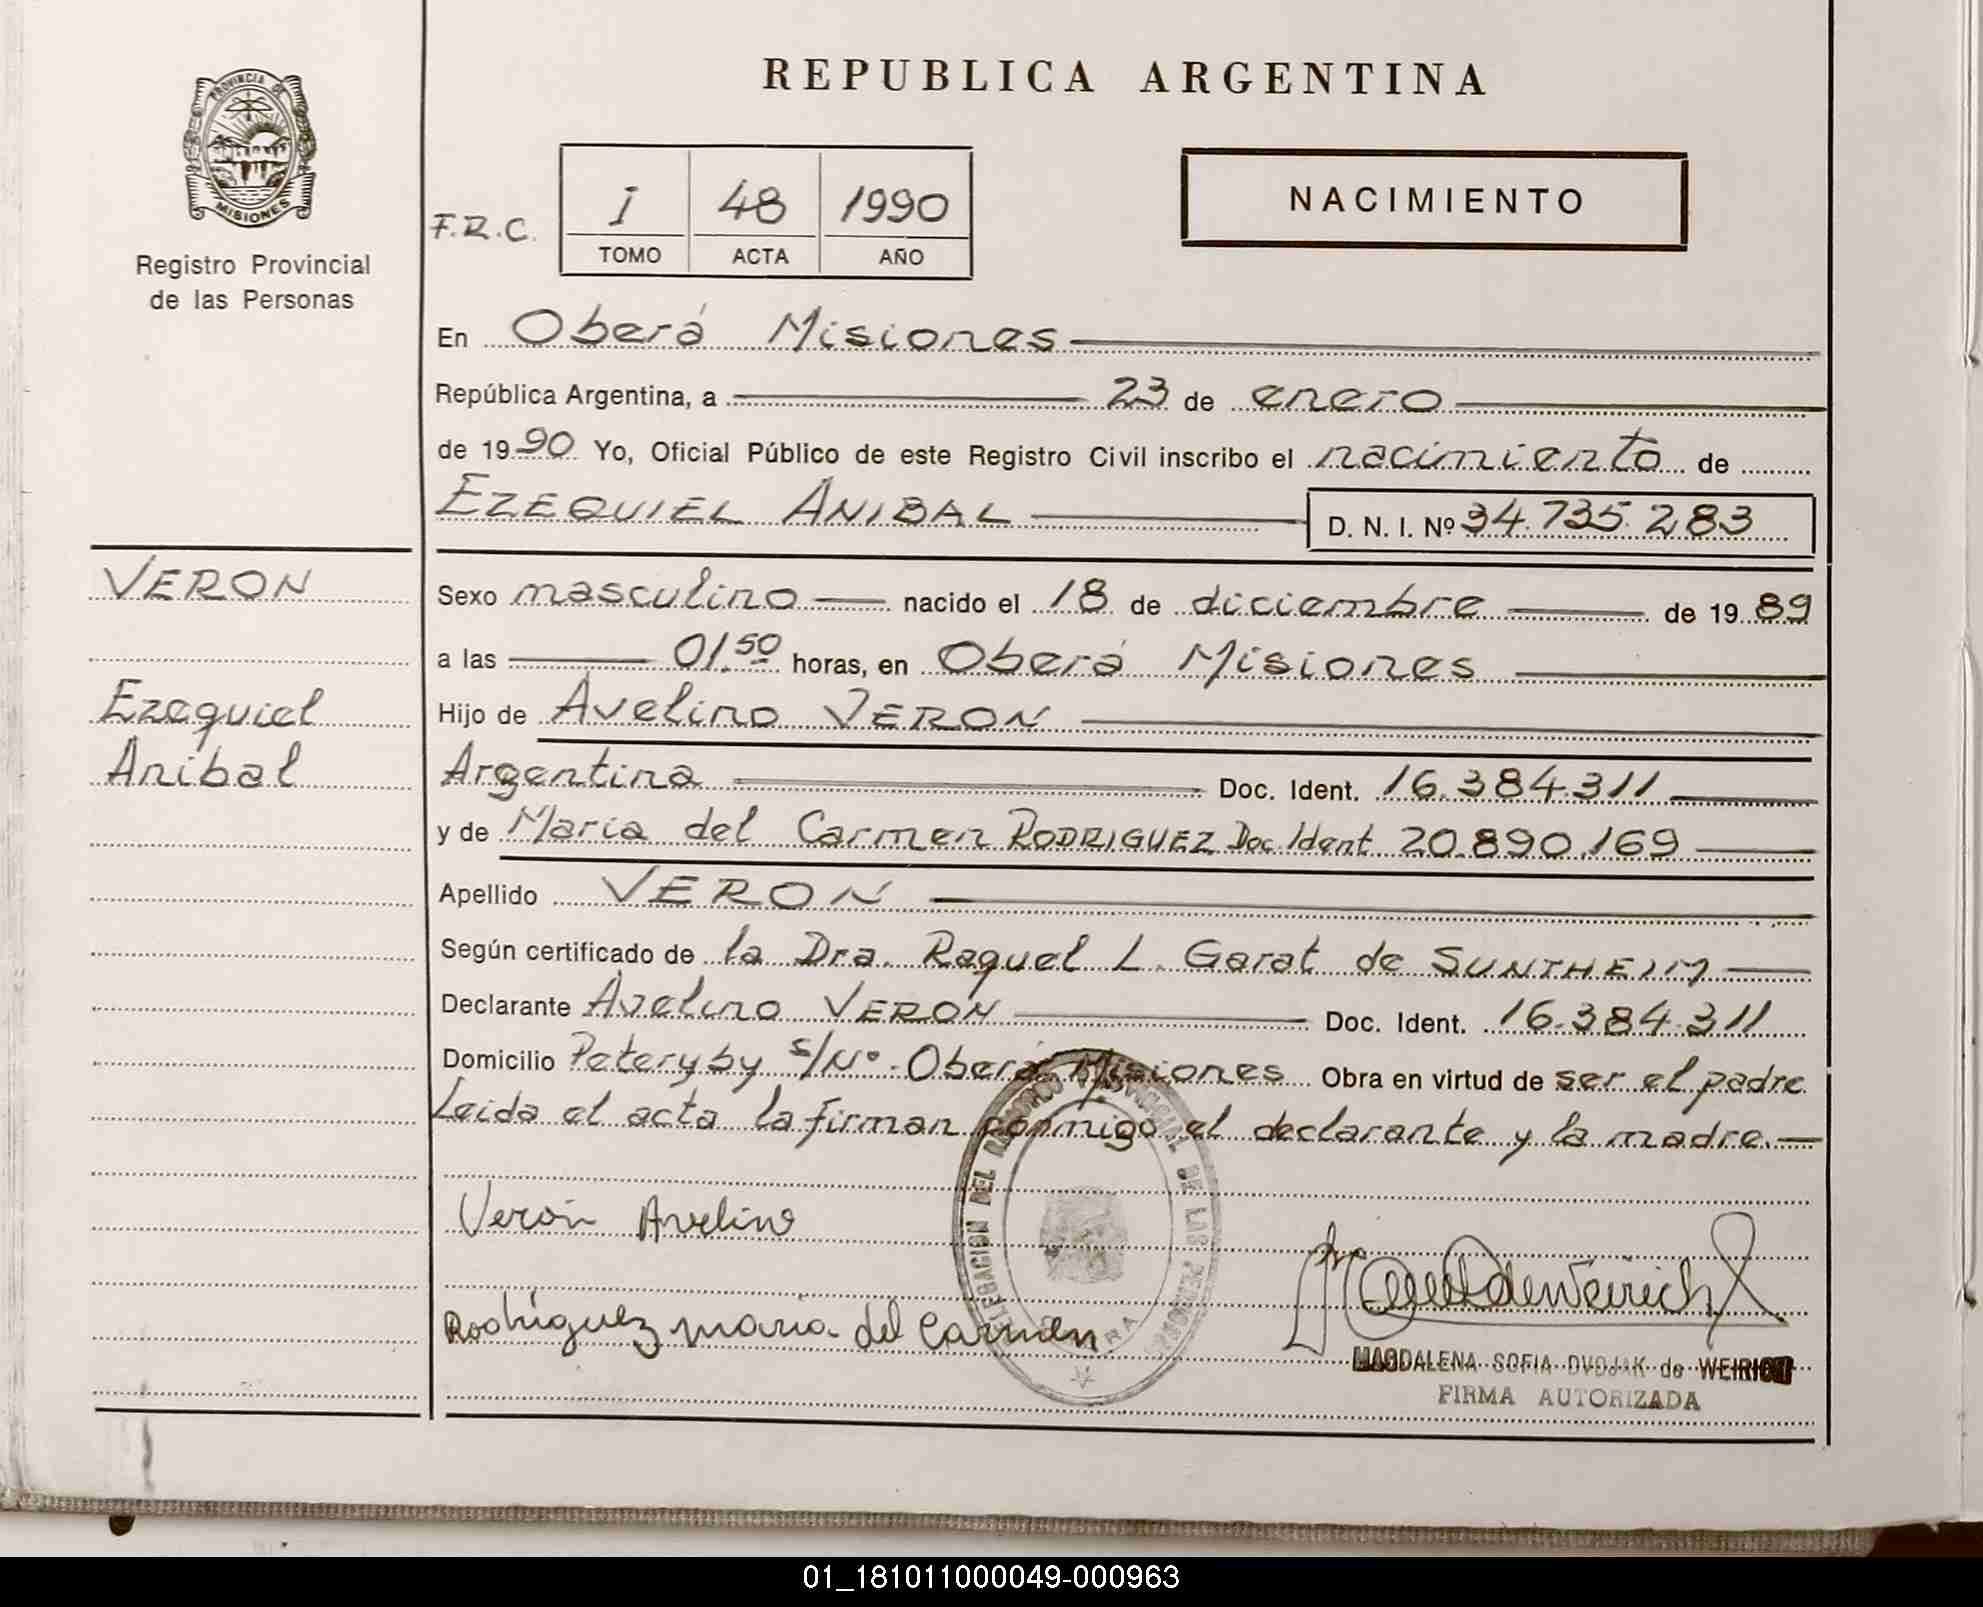 REPUBLICA ARGENTINA
PROVINCIA DE
MISIONES
Registro Provincial
de las Personas
F.R.C.
I 48 1990
TOMO ACTA AÑO
NACIMIENTO
En Oberá Misiones
República Argentina, a 23 de enero
de 1990 Yo, Oficial Público de este Registro Civil inscribo el nacimiento de
EZEQUIEL ANIBAL D. N. I. Nº 34.735.283
VERON
Ezequiel
Anibal
Sexo masculino nacido el 18 de diciembre de 1989
a las 01.50 horas, en Oberá Misiones
Hijo de Avelino VERON
Argentina Doc. Ident. 16.384.311
y de María del Carmen RODRIGUEZ Doc Ident 20.890.169
Apellido VERON
Según certificado de la Dra. Raquel L. Garat de SUNTHEIM
Declarante Avelino VERON Doc. Ident. 16.384.311
Domicilio Peteryby s/Nº - Oberá Misiones Obra en virtud de ser el padre
Leida el acta la firman conmigo el declarante y la madre.
Verón Avelino
Rodríguez maria del Carmen
DELEGACION DEL REGISTRO PROVINCIAL DE LAS PERSONAS
MAGDALENA SOFIA DVOJAK de WEIRICH
FIRMA AUTORIZADA
01_181011000049-000963